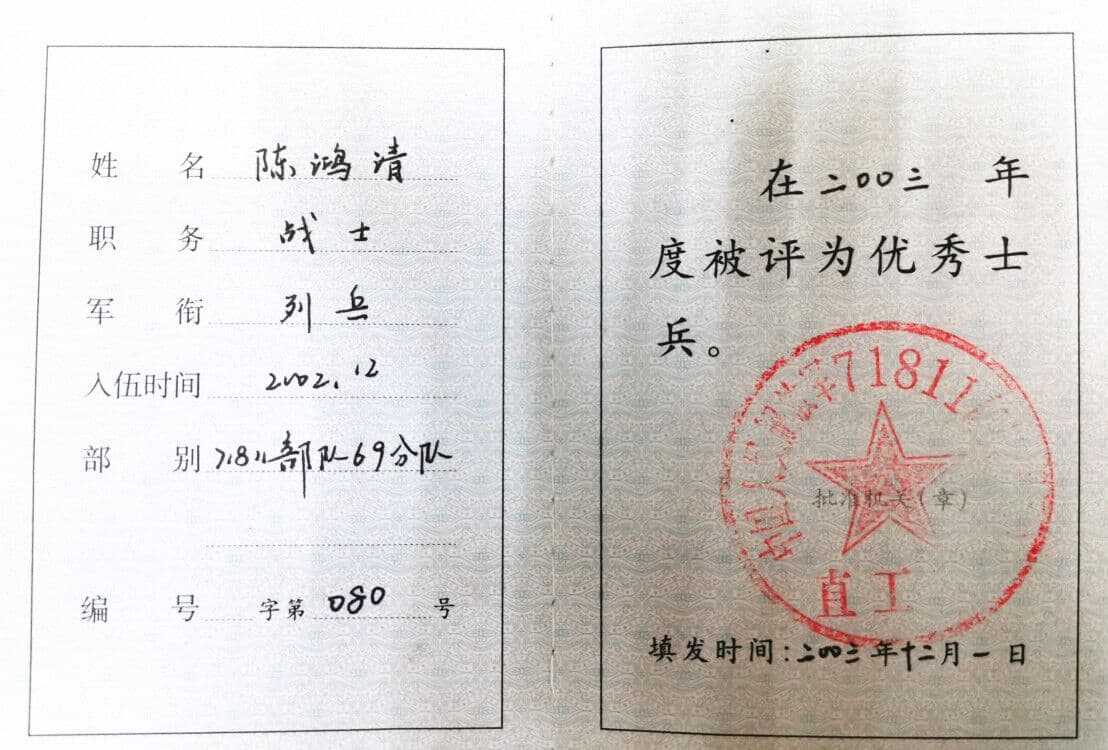 姓名 陈鸿清
职务 战士
军衔 列兵
入伍时间 2002.12
部别 71811部队69分队
编号 字第 080 号
在二00三年
度被评为优秀士
兵。
中国人民解放军71811
批准机关(章)
直工
填发时间:二00三年十二月一日